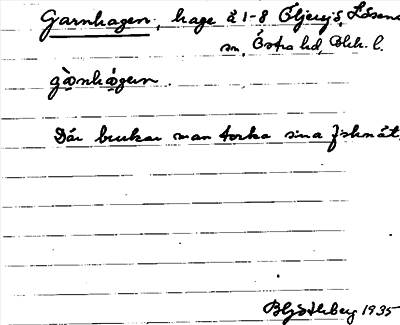 Garnhagen, hage å 1-8 Öljersjö, Lösens
sn, Östra hd, Blek. l.
gà̀ɒnhá̀gɛn.
Där brukar man torka sina fisknät.
1935